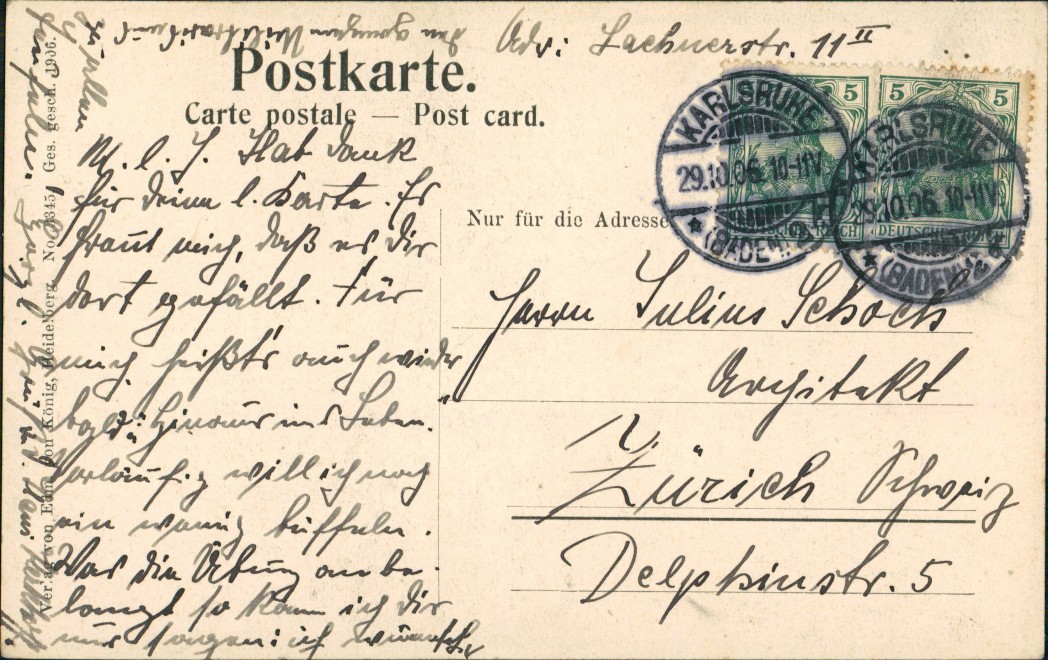 Adr: Lachnerstr. 11 II
Postkarte.
Carte postale — Post card.
M. l. J. Hab dank
für deine l. Karte. Es
freut mich, daß es dir
dort gefällt. Für
mich heißt's auch wieder
bald: „Hinaus ins Leben.
Vorläufig will ich noch
ein wenig büffeln.
Was die Übung anbe-
langt so kann ich dir
nur sagen: ich wünsche
zu
Nur für die Adresse
Herrn Julius Schoch
Architekt
Zürich Schweiz
Delphinstr. 5
5 5
DEUTSCHES REICH
KARLSRUHE
29.10.06. 10-11V.
(BADEN)
KARLSRUHE
29.10.06. 10-11V.
(BADEN)
Verlag von Edm. von König, Heidelberg. No. Ges. gesch. 1906.